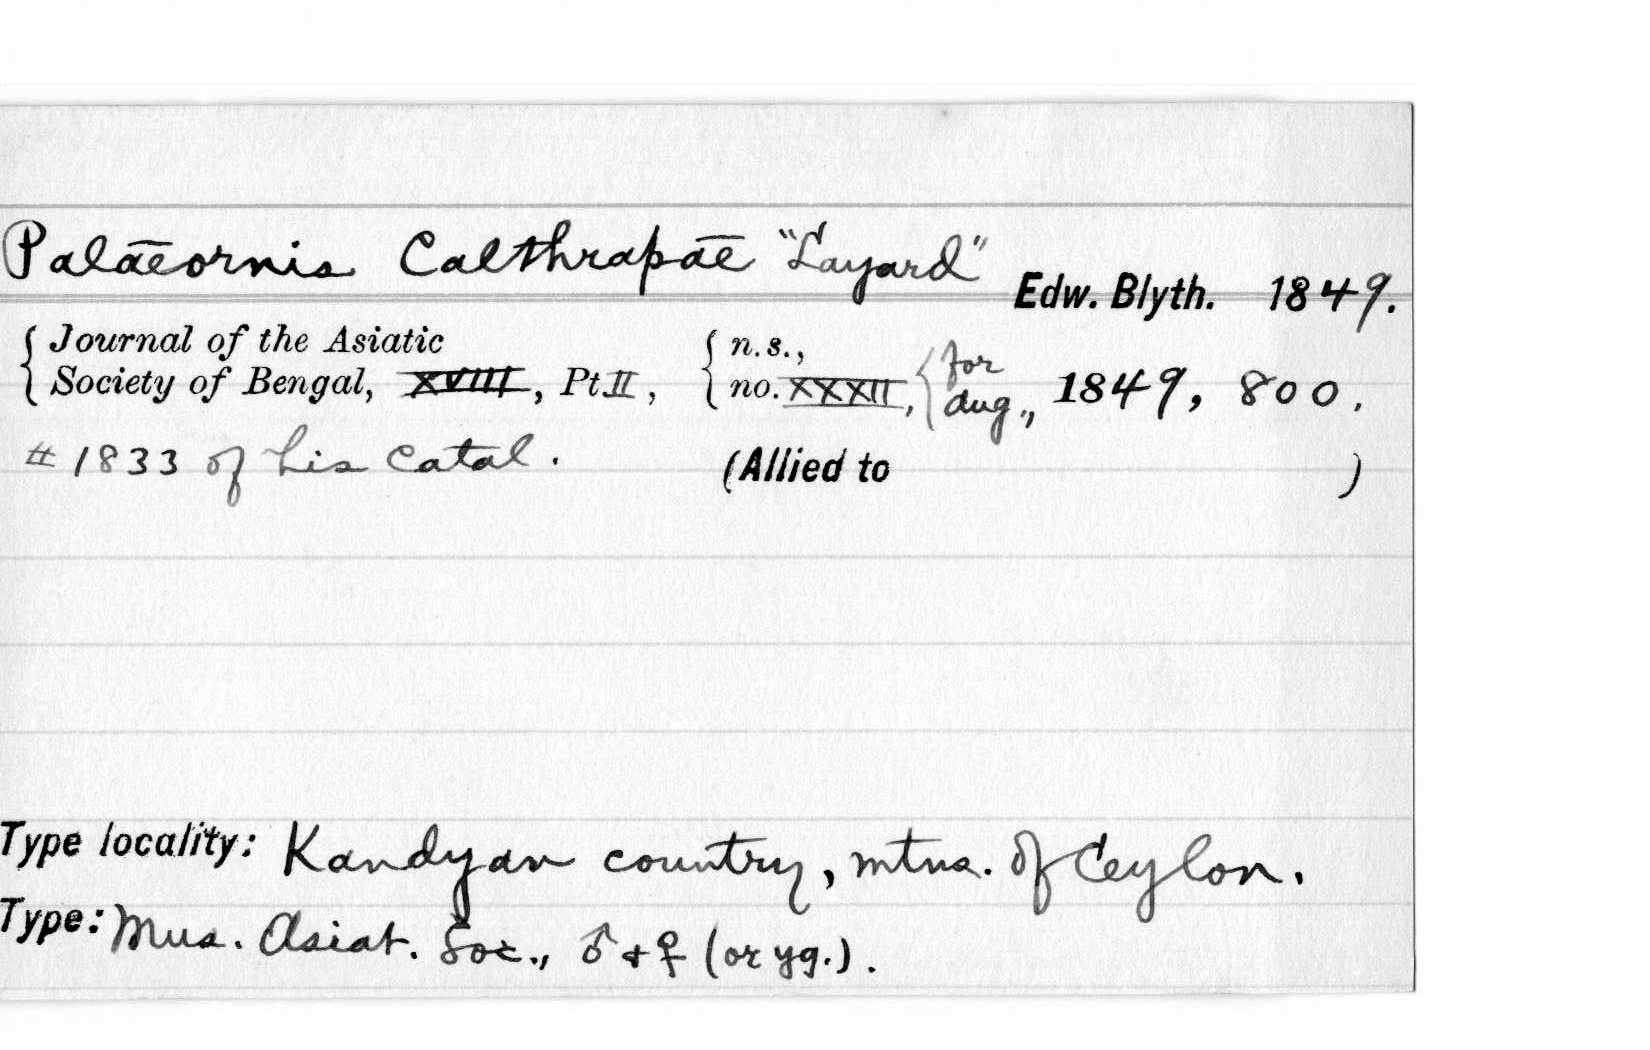 Palaeornis Calthrapae "Layard" Edw. Blyth. 1849.
{ Journal of the Asiatic { n.s.,
{ Society of Bengal, XVIII, Pt II, { no. XXXII, { for Aug., 1849, 800.
# 1833 of his Catal. (Allied to )
Type locality: Kandyan country, mtns. of Ceylon.
Type: Mus. Asiat. Soc., ♂ + ♀ (or yg.).